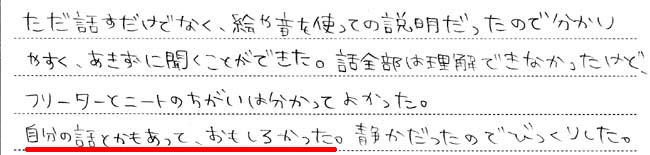 ただ話すだけでなく、絵や音を使っての説明だったので分かり
やすく、あきずに聞くことができた。話全部は理解できなかったけど、
フリーターとニートのちがいは分かってよかった。
自分の話とかもあって、おもしろかった。静かだったのでびっくりした。